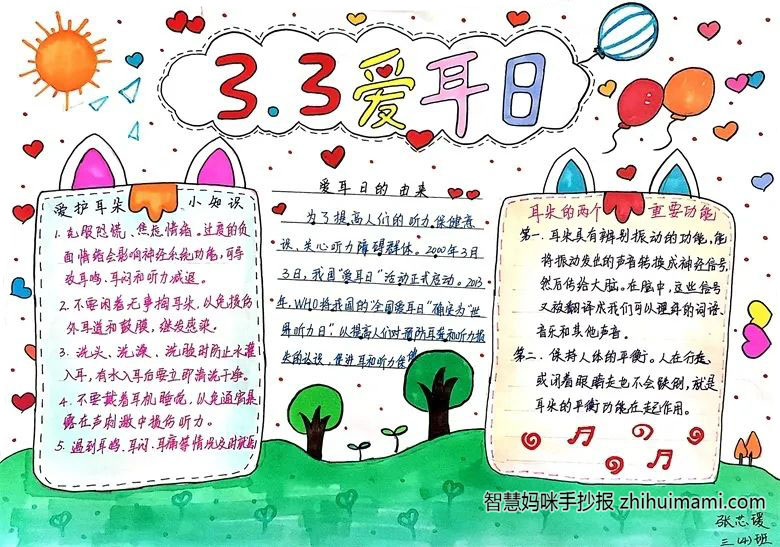 3.3爱耳日
爱护耳朵小知识
1. 克服恐慌、焦虑情绪。过度的负
面情绪会影响神经系统功能,可导
致耳鸣、耳闷和听力减退。
2. 不要闲着无事掏耳朵,以免损伤
外耳道和鼓膜,继发感染。
3. 洗头、洗澡、洗脸时防止水灌
入耳,有水入耳后要立即清洗干净。
4. 不要戴着耳机睡觉,以免通宵暴
露在声刺激中损伤听力。
5. 遇到耳鸣、耳闷、耳痛等情况及时就医
爱耳日的由来
为了提高人们的听力保健意
识、关心听力障碍群体。2000年3月
3日,我国“爱耳日”活动正式启动。2013
年,WHO将我国的“全国爱耳日”确定为“世
界听力日”,以提高人们对预防耳聋和听力损
失的认识,促进耳和听力保健
耳朵的两个重要功能
第一、耳朵具有辨别振动的功能,能
将振动发出的声音转换成神经信号,
然后传给大脑。在脑中,这些信号
又被翻译成我们可以理解的词语、
音乐和其他声音。
第二、保持人体的平衡。人在行走
或闭着眼睛走也不会跌倒,就是
耳朵的平衡功能在起作用。
智慧妈咪手抄报 zhihuimami.com
张芯瑗
三(4)班